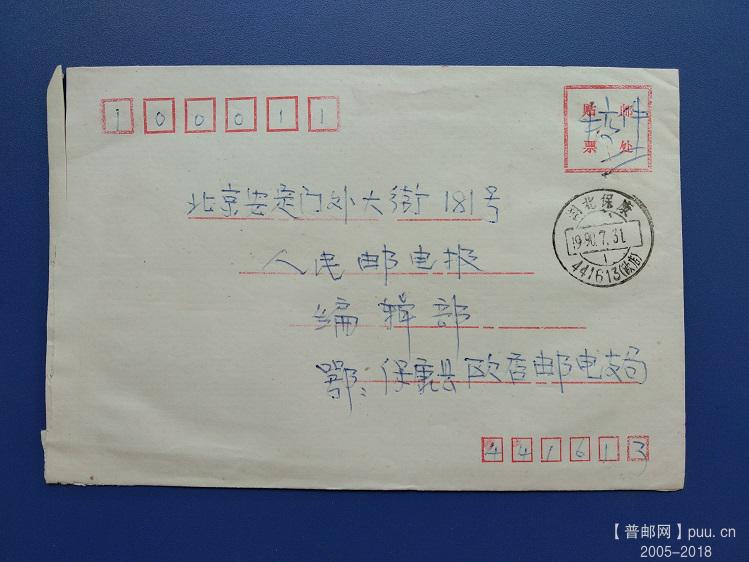 100011
贴 邮
票 处
稿件
北京安定门外大街181号
湖北保康
1990.7.31
1
441613(欧店)
人民邮电报
编辑部
鄂:保康县欧店邮电支局
441613
【普邮网】puu.cn
2005-2018